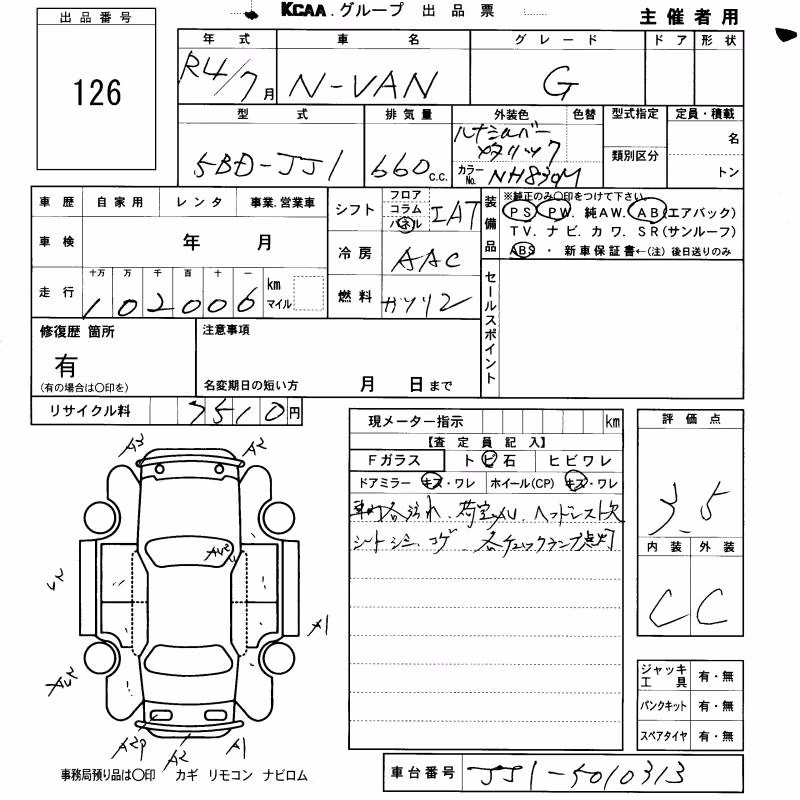 KCAA.グループ 出品票
主催者用
出品番号
126
年式 車名 グレード ドア 形状
R4/7月 N-VAN G
型式 排気量 外装色 色替 型式指定 定員・積載
5BD-JJ1 660c.c. ルナシルバーメタリック
名
類別区分
カラーNo. NH830M
トン
車歴 自家用 レンタ 事業.営業車
シフト フロア コラム パネル IAT
装備品
※純正のみ○印をつけて下さい。
PS. PW. 純AW. AB(エアバック)
TV. ナビ. カワ. SR(サンルーフ)
ABS ・ 新車保証書←(注)後日送りのみ
車検 年 月
冷房 AAC
走行 十万 万 千 百 十 一
102006 km マイル
燃料 ガソリン
セールスポイント
修復歴 箇所
有
(有の場合は○印を)
注意事項
名変期日の短い方 月 日まで
リサイクル料 7510円
現メーター指示 km
【査定員記入】
Fガラス トビ石 ヒビワレ
ドアミラー キズ・ワレ ホイール(CP) キズ・ワレ
車内各汚れ、荷室キズ、ヘッドレスト欠
シートシミ、コゲ 各チェックランプ点灯
評価点
3.5
内装 外装
C C
A3 A2
A1
A2 A1
ジャッキ工具 有・無
パンクキット 有・無
スペアタイヤ 有・無
事務局預り品は○印 カギ リモコン ナビロム
車台番号 JJ1-5010313